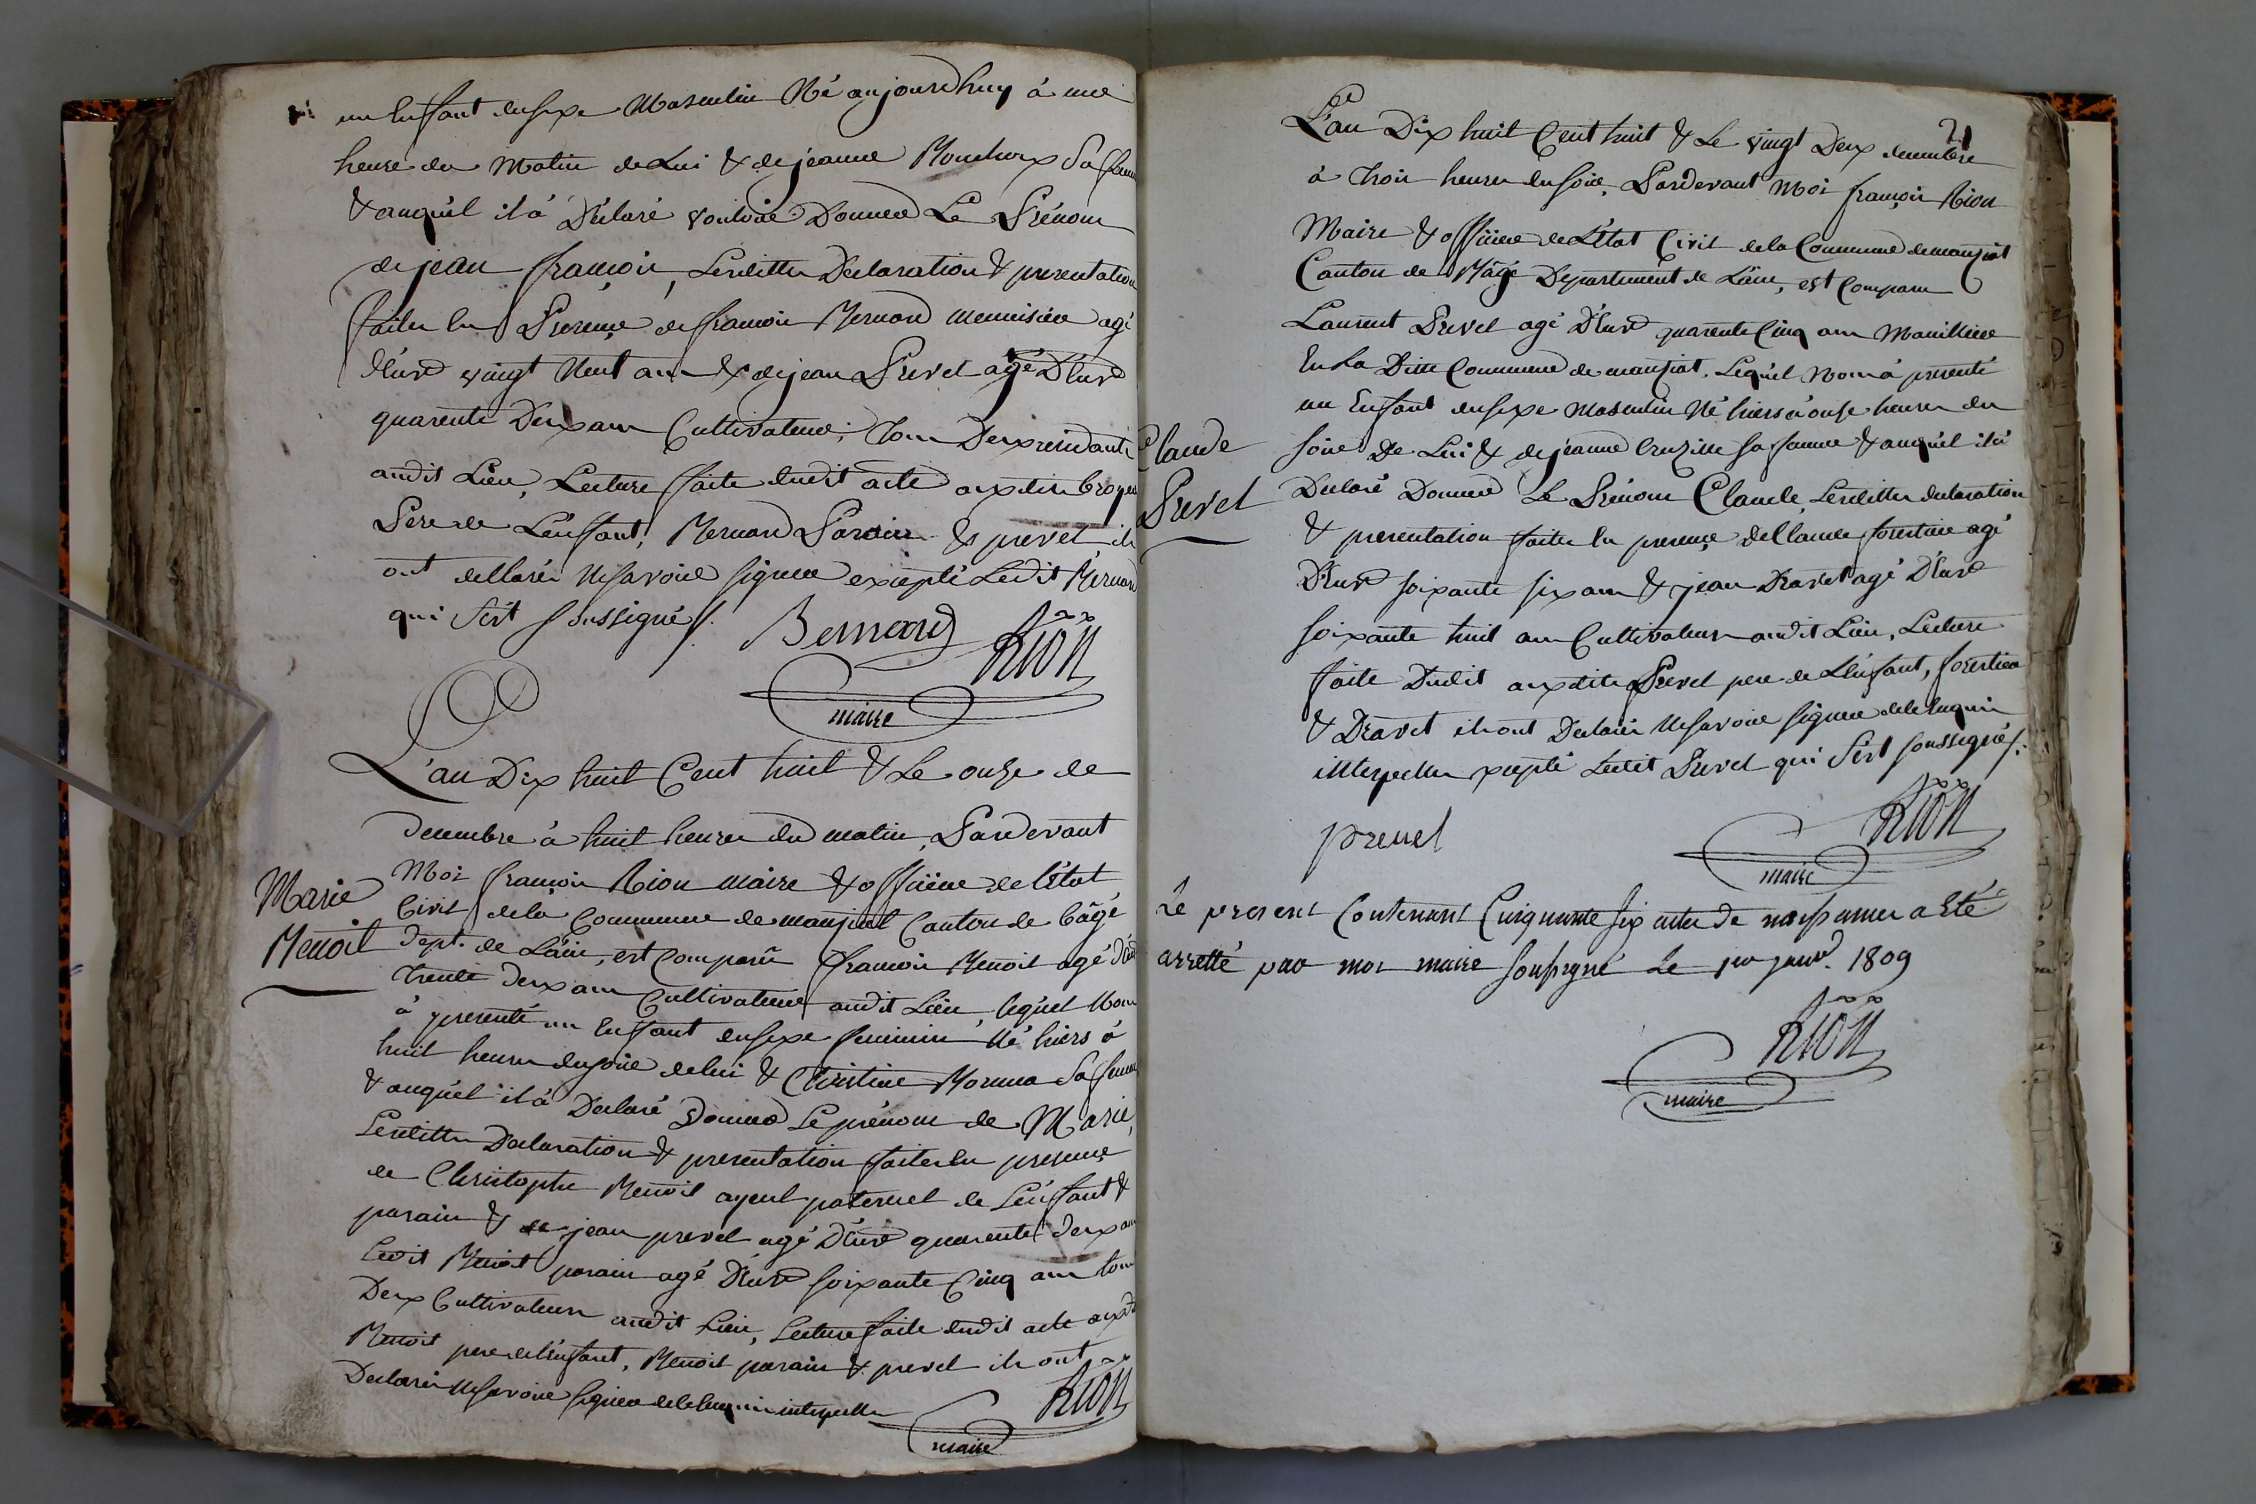 un Enfant du sexe Masculin Né aujourdhuy à une
heure du Matin de Lui & de jeanne Mouchoux Sa femme
& auquel il à Déclaré vouloir Donner Le Prénom
de jean françois, Lesdittes Declaration & presentation
faites En Presence de françois Bernard menuisier agé
d'Env vingt Neuf ans & de jean Prevel agé D'Env
quarente Deux ans Cultivateur, Tous Deux residants
audit Lieu, Lecture faite dudit acte auxdits
Pere de L'enfant, Bernard Parain & prevel ils
ont declarés Ne savoir signer excepté Ledit Bernard
qui s'est soussigné.
Bernard Riön
maire
L'an Dix huit Cent huit & Le onze de
decembre à huit heures du matin, Pardevant
Moi françois Rion maire & officier de L'état
Civil de la Commune de manziat Canton de bâgé
Marie
Benoit
dept. de L'ain, est Comparû francois Benoit agé d'Env
trente deux ans Cultivateur audit Lieu, lequel Nous
à presenté un Enfant du sexe feminin Né hiers à
huit heures du soir de lui & Christine Sa femme
& auquel il à Declaré Donner Le prénom de Marie,
Lesdittes Declaration & presentation faites En presence
de Christophe Benoit ayeul paternel de L'enfant &
parain & de jean prevel agé D'Env quarente deux ans
Ledit Benoit parain agé D'Env soixante Cinq ans tous
Deux Cultivateurs audit Lieu, Lecture faite dudit acte auxdts
Benoit pere de L'enfant, Benoit parain & prevel ils ont
Declarés Ne savoir signer de ce Enquis interpellés
Riön
maire
21
L'an Dix huit Cent huit & Le vingt Deux decembre
à Trois heures du soir, Pardevant Moi françois Rion
Maire & officier de L'état Civil de la Commune de manziat
Canton de Bâgé Departement de L'ain, est Comparu
Laurent Prevel agé D'Env quarente Cinq ans
En La Ditte Commune de manziat, Lequel Nous à presenté
un Enfant du sexe Masculin Né hiers à onze heures du
soir De Lui & de jeanne Cruzille sa femme & auquel il à
Claude
Prevel
Declaré Donner Le Prénom Claude, Lesdittes declaration
& presentation faites En presence de Claude forestier agé
D'Env soixante six ans & jean Dravet agé D'Env
soixante huit ans Cultivateurs audit Lieu, Lecture
faite Dudit auxdits Prevel pere de L'enfant, forestier
& Dravet ils ont Declarés Ne savoir signer de ce Enquis
interpellés excepté Ledit Prevel qui s'est soussigné.
prevel
Riön
maire
Le present Contenant Cinquante six actes de naissances a Eté
arretté par moi maire soussigné Le 1er janv. 1809
Riön
maire